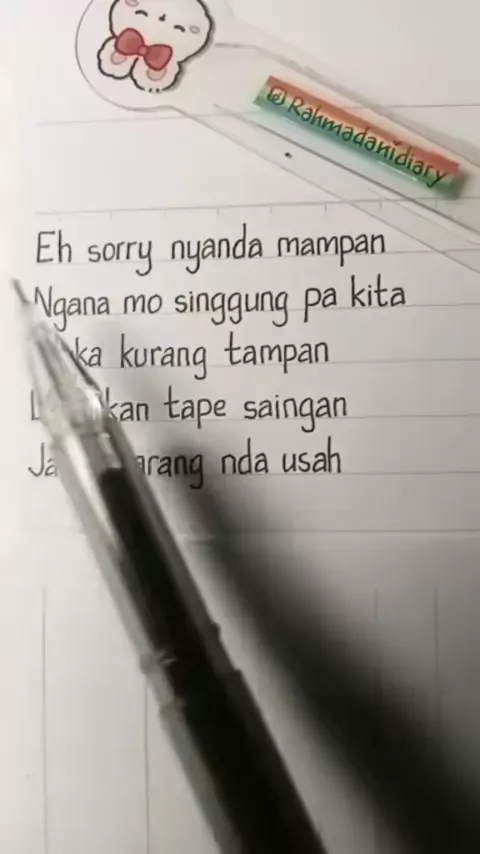 @Rahmadanidiary
Eh sorry nyanda mampan
Ngana mo singgung pa kita
kurang tampan
tape saingan
nda usah